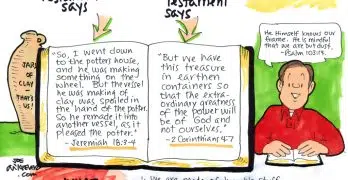 says
Testament
says
"So, I went down
to the potters house,
and he was making
something on the
wheel. But the vessel
he was making of
clay was spoiled in
the hand of the potter.
So he remade it into
another vessel, as it
pleased the potter."
- Jeremiah 18:3-4
"But we have
this treasure in
earthen
containers so
that the extra-
ordinary greatness
of the power will
be of God and
not ourselves."
- 2 Corinthians 4:7
He Himself knows our
frame. He is mindful
that we are but dust.
-Psalm 103:14
JARS
OF
CLAY
THAT'S
US!
.com